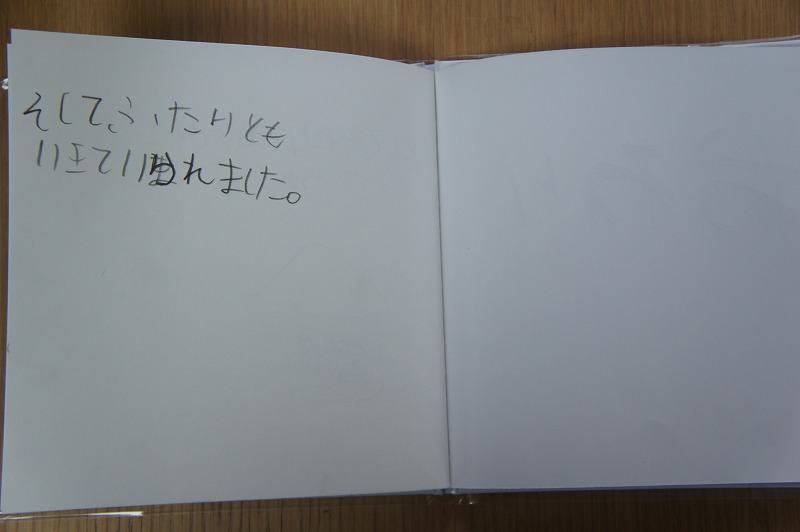 そして、ふたりとも
いきていられました。